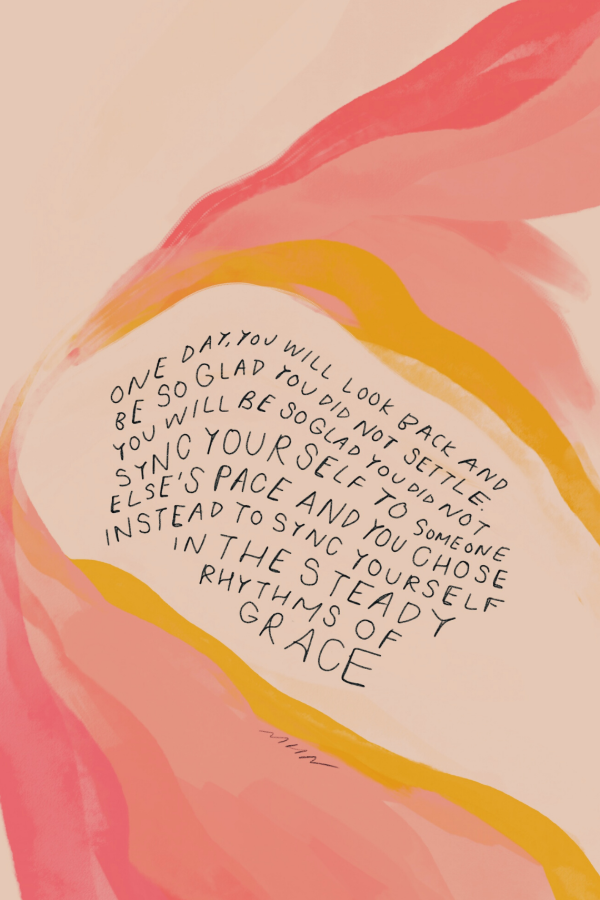 ONE DAY, YOU WILL LOOK BACK AND
BE SO GLAD YOU DID NOT SETTLE.
YOU WILL BE SO GLAD YOU DID NOT
SYNC YOURSELF TO SOMEONE
ELSE'S PACE AND YOU CHOSE
INSTEAD TO SYNC YOURSELF
IN THE STEADY
RHYTHMS OF
GRACE